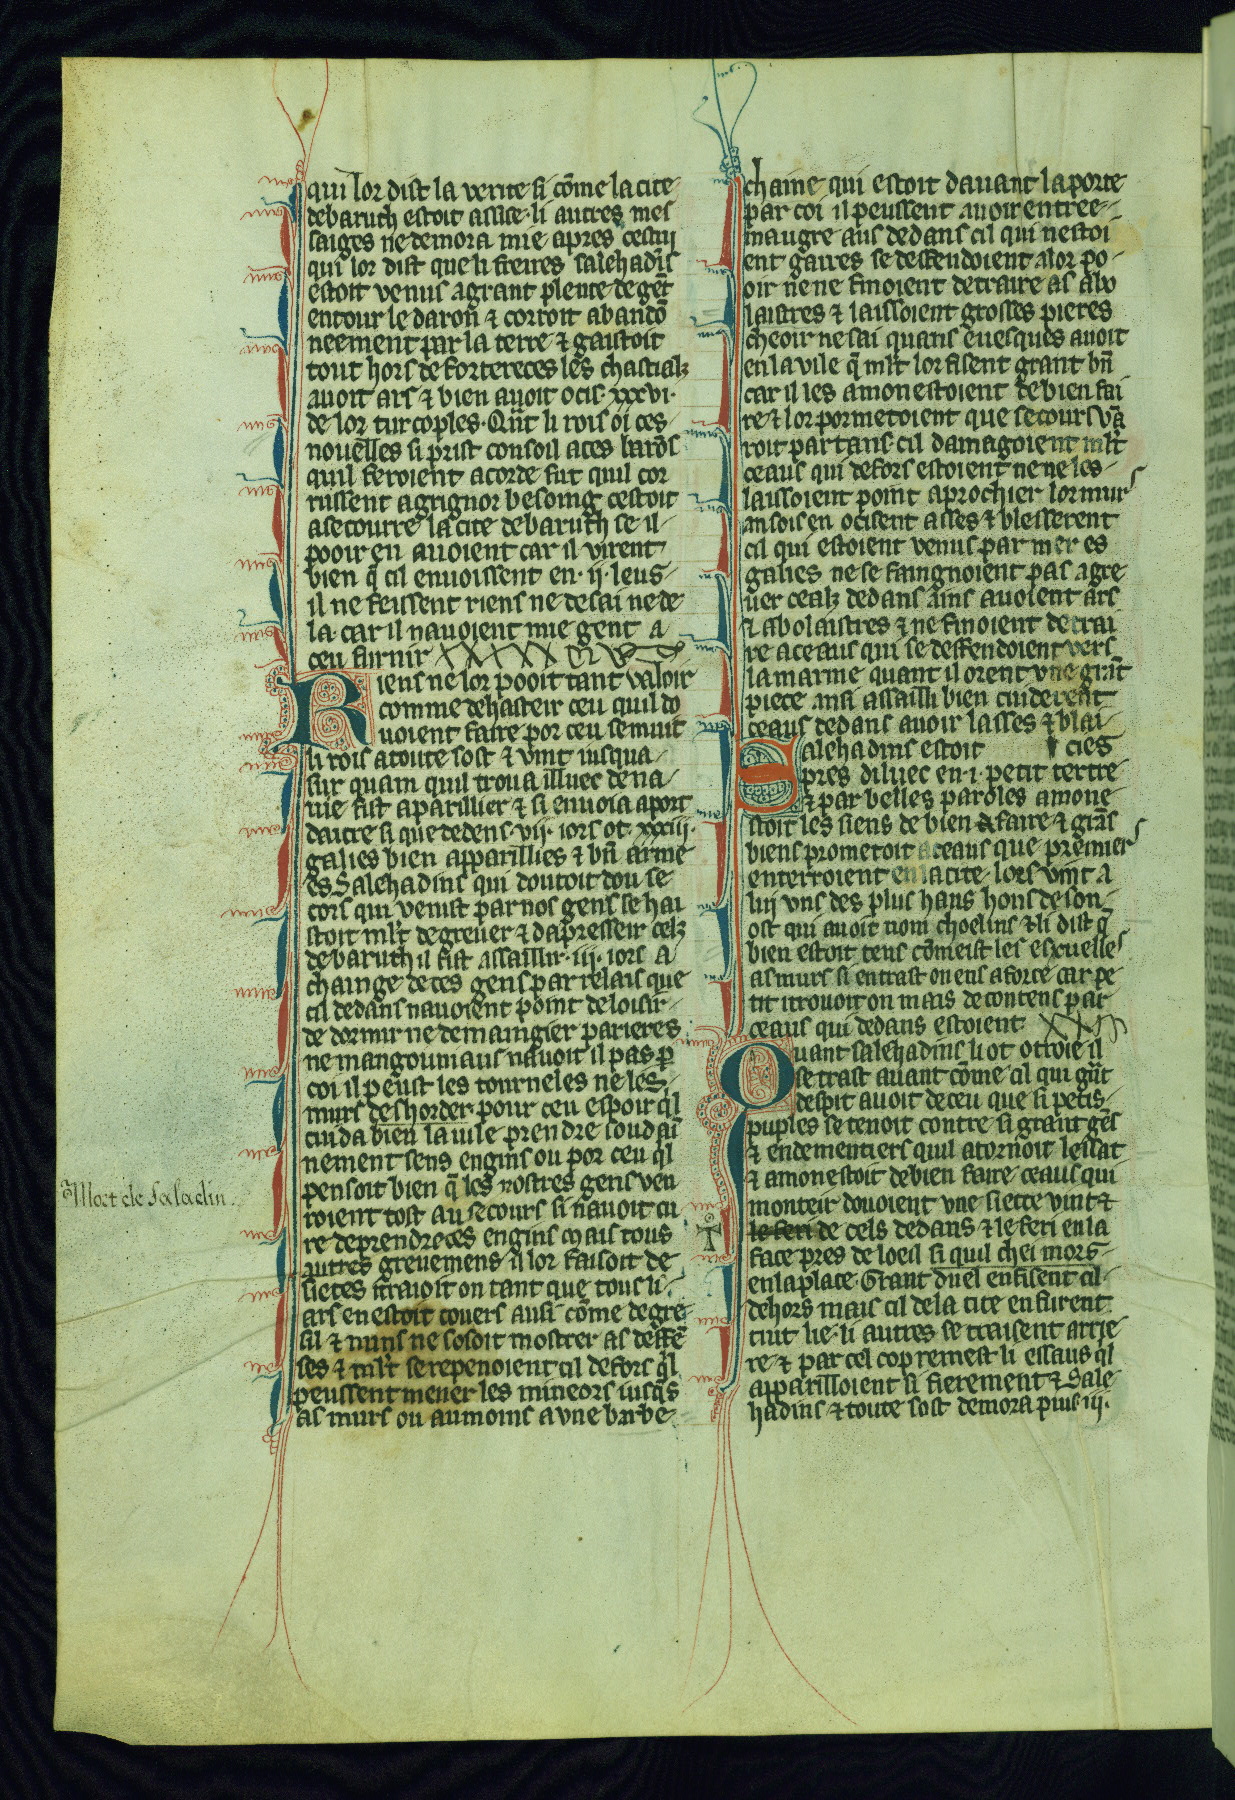 qui lor dist la verite si cõme la cite
de baruth estoit assise· li autres mes
saiges ne demora mie apres cestui
qui lor dist que li freires salehadīs
estoit venus a grant plente de gēt
entour le daron̄ & corroit abandō
neement par la terre & gaistoit
tout hors de fortereces les chastialz
avoit ars & bien avoit ocis· xxxvi·
de lor turcoples· Qūt li rois oi ces
novelles si prist consoil a ces barōs
quil feroient acorde fut quil cor
russent a grignor besoing cestoit
a secourre la cite de baruth se il
pooir en avoient car il virent
bien q̄ cil envoissent en· ij· leus
il ne feissent riens ne de sai ne de
la· car il navoient mie gent a
ceu furnir
Riens ne lor pooit tant valoir
comme de hasteir ceu quil do
voient faire por ceu se muit
li rois a toute sost & vint iusqua
sur quam quil trova illuec de na
vie fist aparillier & si envoia a port
dautre si que dedens· vij· iors ot· xxxiij·
galies bien apparillies & bn̄ arme
es Salehadins qui doutoit dou se
cors qui venist par nos gens se hai
stoit ml't de grever & dapresseir celz
de baruth il fist assaillir· iij· iors a
chainge de ces gens par relais que
cil dedans navoient point de loisir
de dormir ne de maingier parieres
ne mangouniaus navoit il pas p̄
coi il peust les torneles ne les
murs deshorder pour ceu espoir q'l
cuida bien la vile prendre soudai
nement sens engins ou por ceu q'l
pensoit bien q̄ les nostres gens ven
roient tost au secours si navoit cu
re de prendre ces engins mais tous
autres grevemens il lor faisoit de
sietes traioit on tant que tous li
ars en estoit covers ausi cōme de gre
sil & nuns ne sosoit mostrer as deffē
ses & ml't se repenoient cil defors q'l
peussent mener les mineors iusq̄s
as murs ou au moins a une barbe
Mort de Saladin.
chaine qui estoit davant la porte
par coi il peussent avoir entree
maugre aus dedans cil qui nestoi
ent gaires se deffendoient a lor po
oir ne ne finoient de traire as abo
laistres & laissoient grosses pieres
cheoir ne sai quans evesques avoit
en la vile q̄ ml't lor fisent grant bn̄
car il les amonestoient de bien fai
re & lor pormetoient que secours vā
roit par tans· cil damagoient ml't
ceaus qui defors estoient ne ne les
laissoient point aprochier lor murs
ansois en ocisent asses & blesserent
cil qui estoient venus par mer es
galies ne se faingnoient pas a gre
ver cealz dedans ains avoient ars
& abolaistres & ne finoient de trai
re a ceaus qui se deffendoient vers
la marine quant il orent une grāt
piece ansi assailli bien cuiderent
ceaus dedans avoir lasses & blai
Salehadins estoit cies
pres diluec en· i· petit tertre
& par belles paroles amone
stoit les siens de bien faire & grās
biens prometoit a ceaus que premiers
enterroient en la cite· lors vint a
lui uns des plus haus hons de son
ost qui avoit nom choelins & li dist q̄
bien estoit tens cōmeist les eschelles
as murs si entrast on ens a force car pe
tit i trovoit on mais de contens par
ceaus qui dedans estoient
Quant salehadins li ot ottroie il
se traist avant cōme cil qui grāt
despit avoit de ceu que si petis
puples se tenoit contre si grant gēs
& endementiers quil atornoit lessat
& amonestoit de bien faire ceaus qui
monteir dovoient une siette vint &
le feri de cels dedans & le feri en la
face pres de loeil si quil chei mors
en la place· Grant duel en fisent cil
dehors mais cil de la cite en furent
tuit lie· li autres se traisent arrie
re & par cel cop remest li essaus q'l
apparilloient si fierement & Sale
hadins & toute sost demora puis iij·